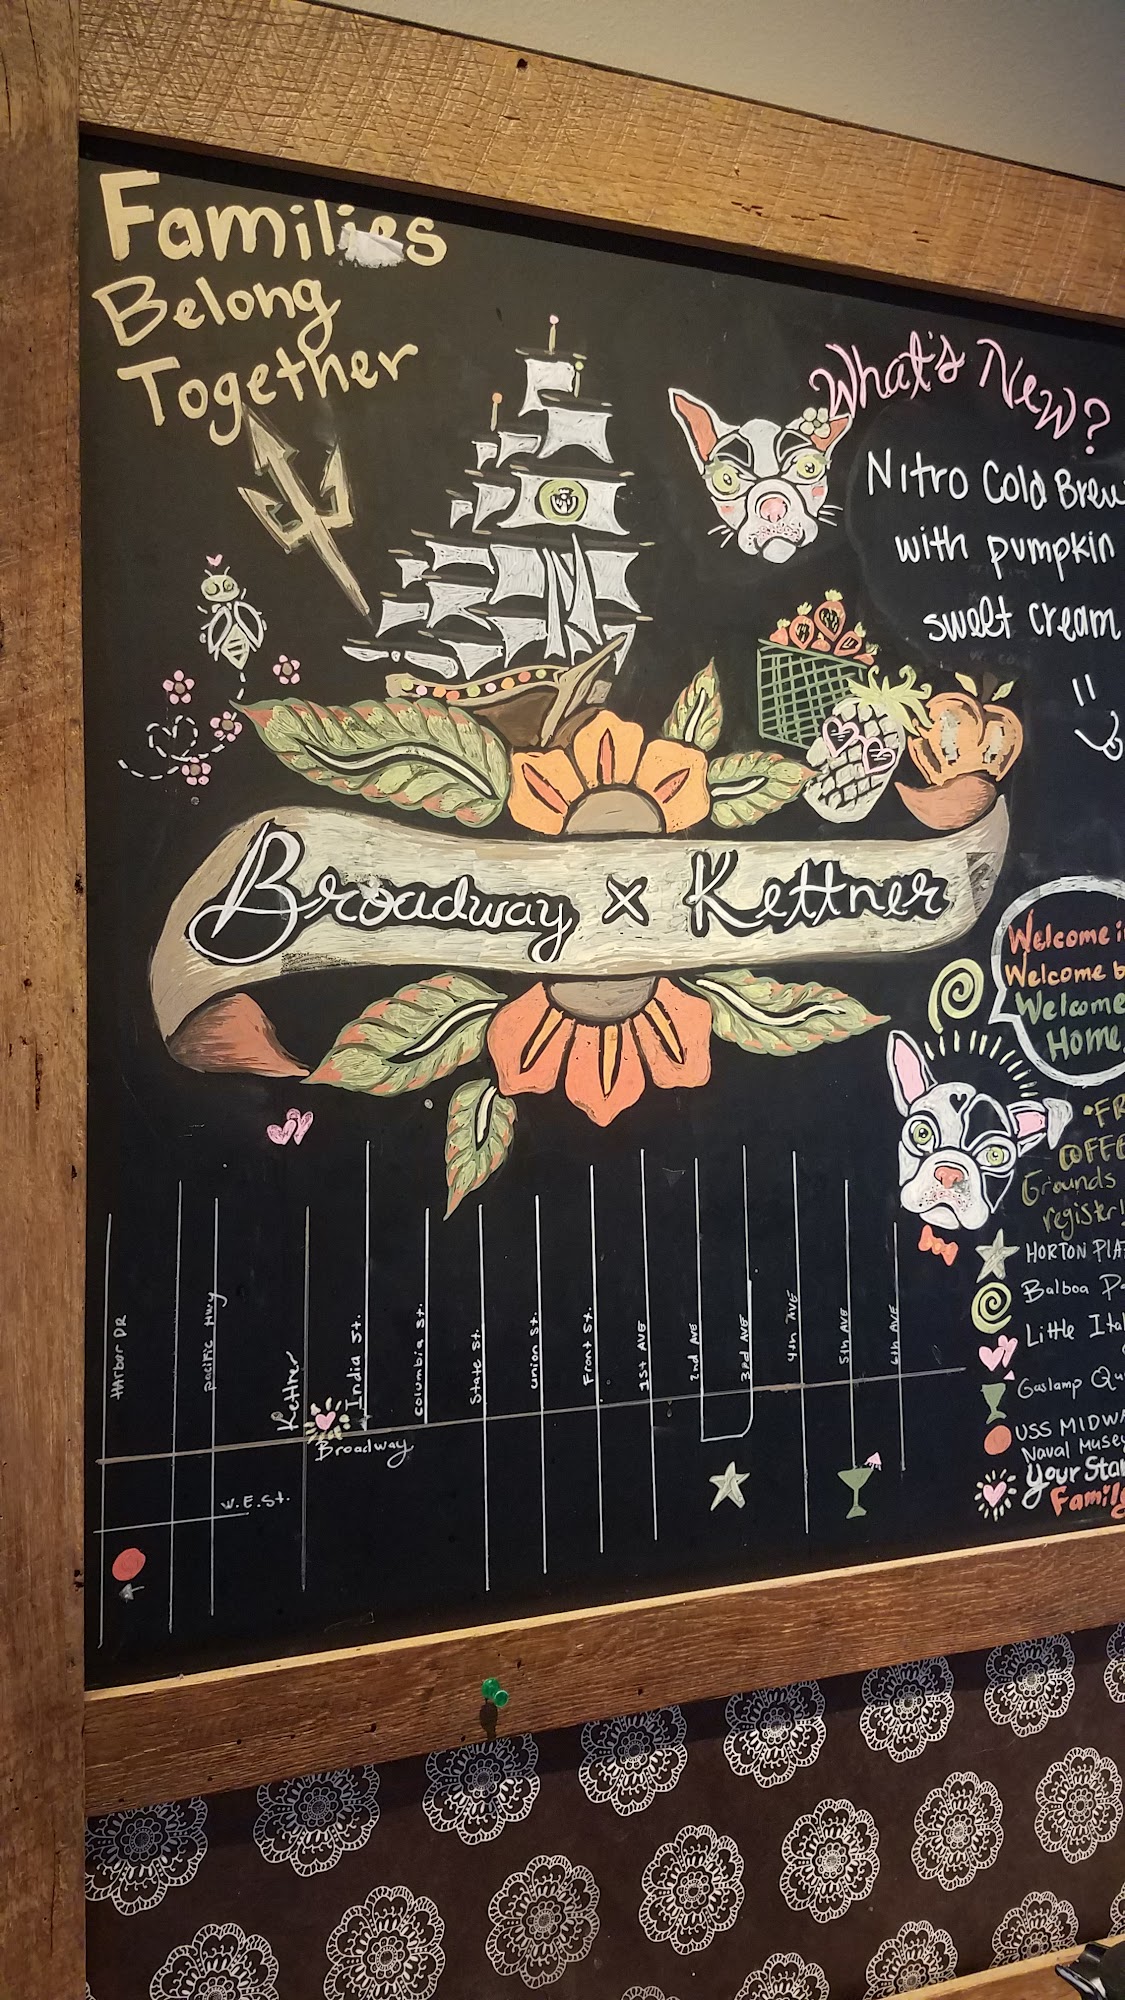 Families
Belong
Together
What's New?
Nitro Cold Brew
with pumpkin
sweet cream
Broadway x Kettner
Welcome i
Welcome b
Welcome
Home
•FR
COFFEE
Grounds
register!
HORTON PLA
Balboa P
Little Ital
Gaslamp Qu
USS MIDWA
Naval Muse
Your Sta
Family
Harbor DR
pacific Hwy
Kettner
India St.
columbia St.
State St.
union St.
Front St.
1st AVE
2nd AVE
3rd AVE
4th AVE
5th AVE
6th AVE
Broadway
W.E.St.